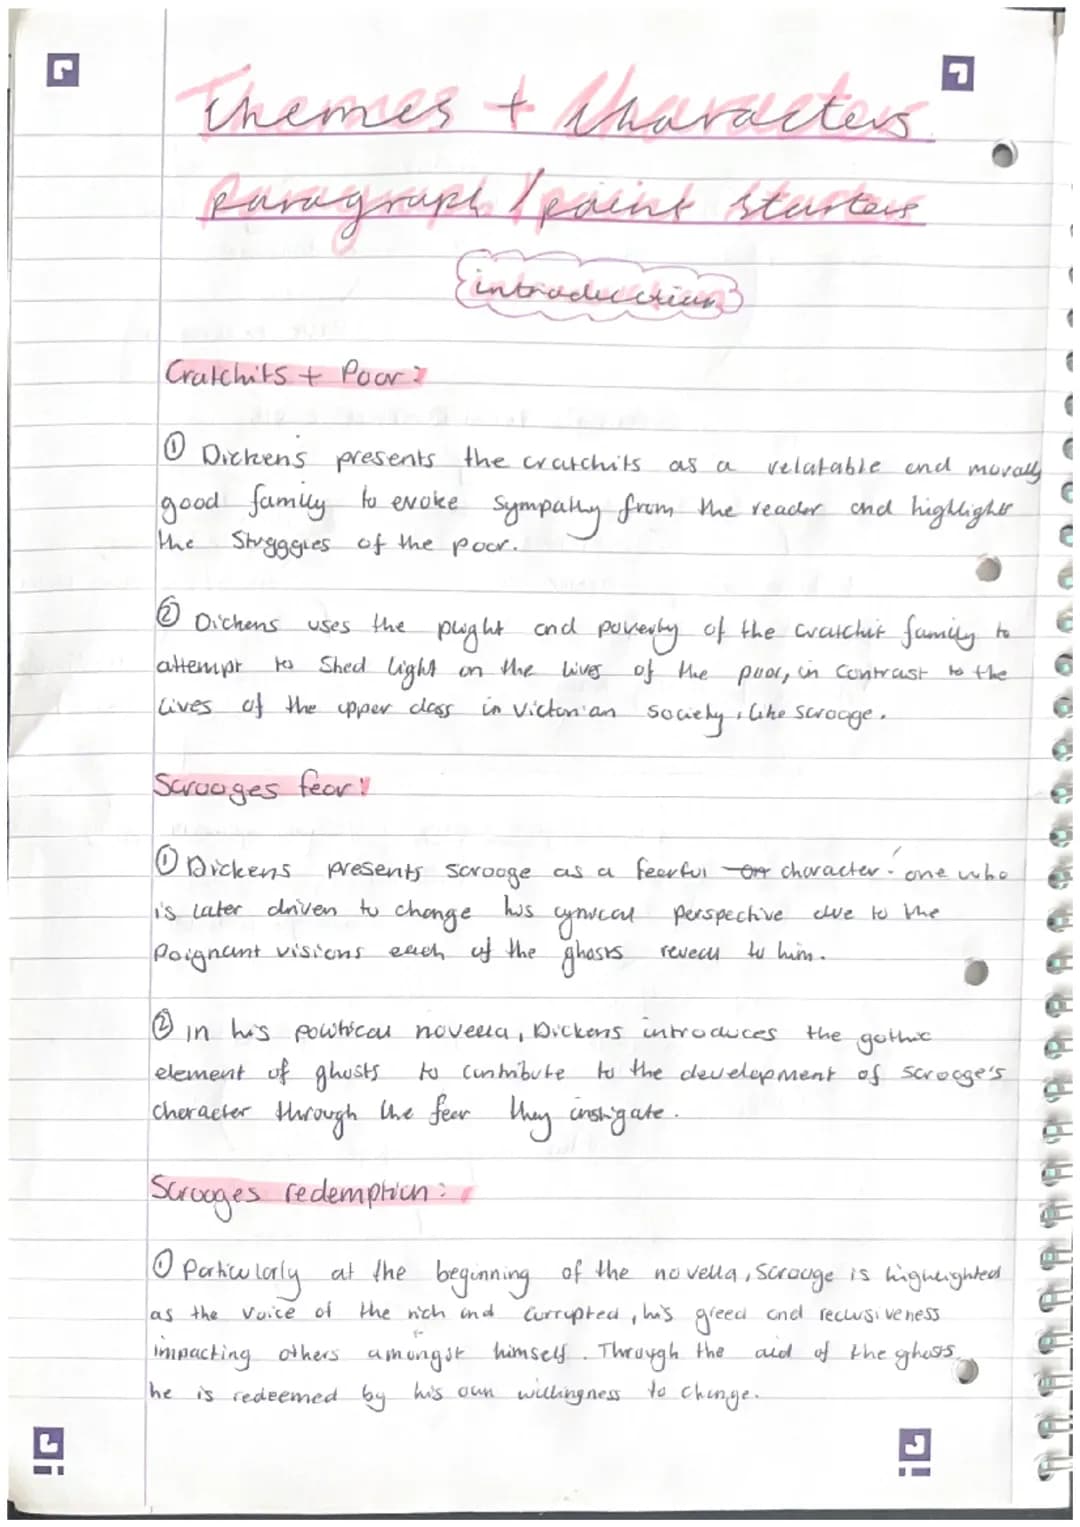 Themes + Characters
paragraph / point starters
introduction
Cratchits + Poor:
① Dickens presents the cratchits as a relatable and morally
good family to evoke sympathy from the reader and highlights
the Struggles of the poor.
② Dickens uses the plight and poverty of the cratchit family to
attempt to Shed light on the lives of the poor, in Contrast to the
Lives of the upper class in Victorian society, like scrooge.
Scrooges fear:
① Dickens presents scrooge as a fearful character - one who
is Later driven to change his cynical perspective due to the
Poignant visions each of the ghosts reveal to him.
② in his political novella, Dickens introduces the gothic
element of ghosts to contribute to the development of scrooge's
character through the fear they instigate.
Scrooges redemption:
① Particularly at the beginning of the novella, Scrooge is highlighted
as the voice of the rich and corrupted, his greed and reclusiveness
impacting others amongst himself. Through the aid of the ghosts,
he is redeemed by his own willingness to change.